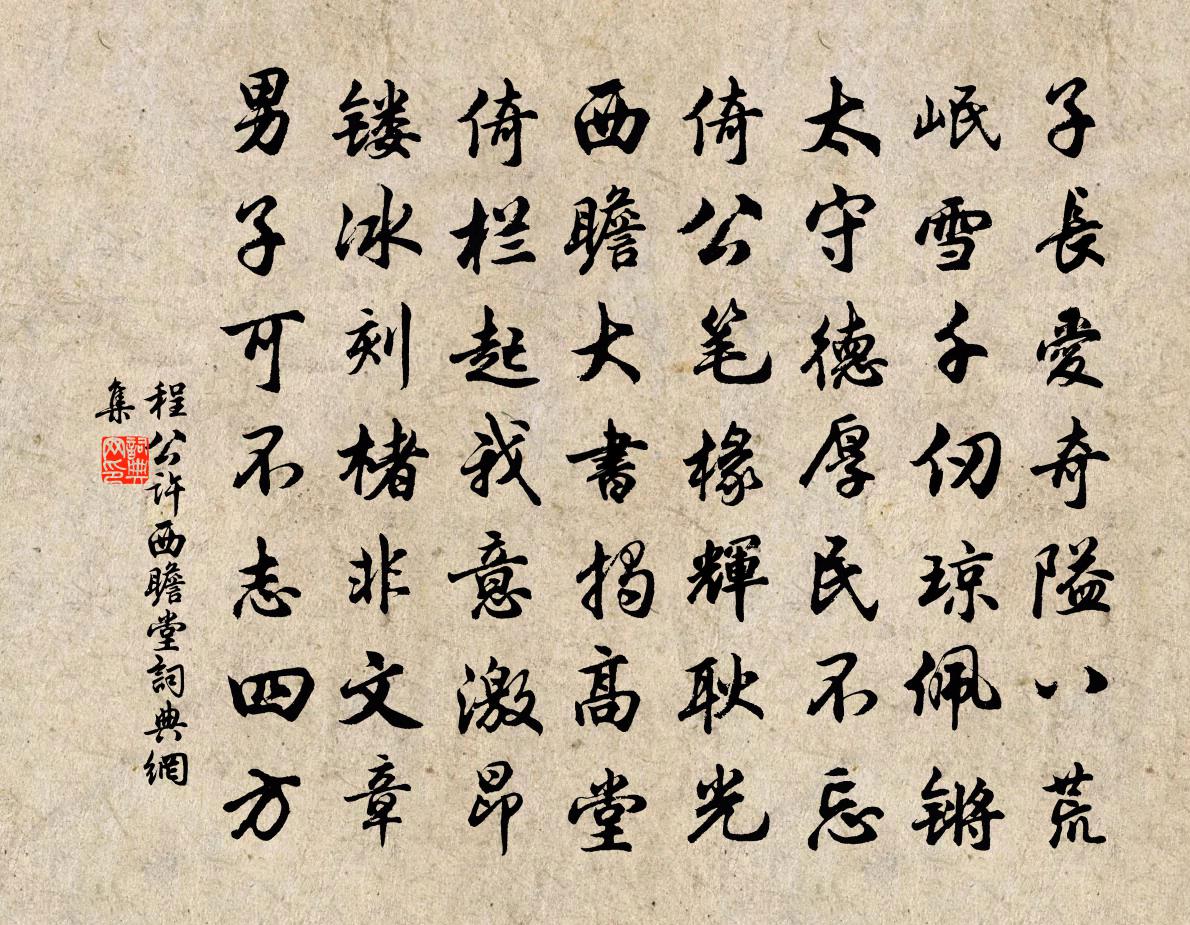 子長愛奇隘八荒
岷雪千仞琼佩锵
太守德厚民不忘
倚公笔椽輝耿光
西瞻大書揭高堂
倚栏起我意激昂
镂冰刻楮非文章
男子可不志四方
程公许西瞻堂詞典網
集
詞典
网印